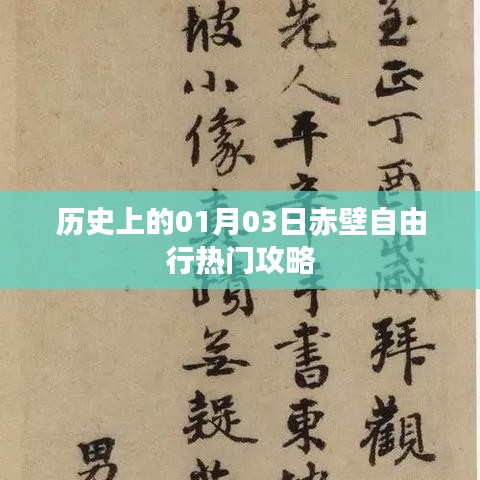 至正丁酉歲拜觀
先人平 手書東坡
坡小像 蹟無疑
男
历史上的01月03日赤壁自由
行热门攻略